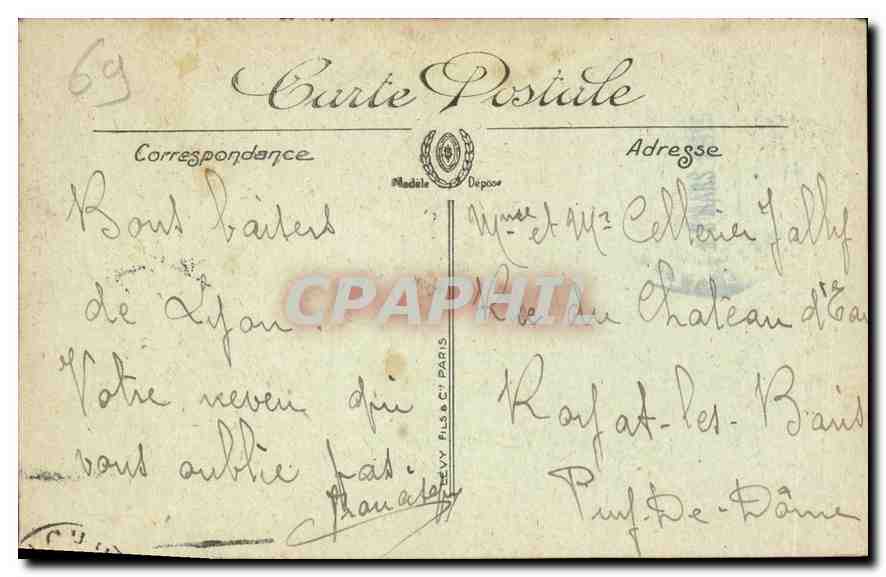 69
Carte Postale
Correspondance
Adresse
Modèle Déposé
Bons baisers
de Lyon.
Votre neveu qui
vous oublie pas.
LÉVY FILS & Cie PARIS
Mme et Mr Cellerier
Rue du Château d'Eau
Royat-les-Bains
Puy-De-Dôme
CPAPHIL